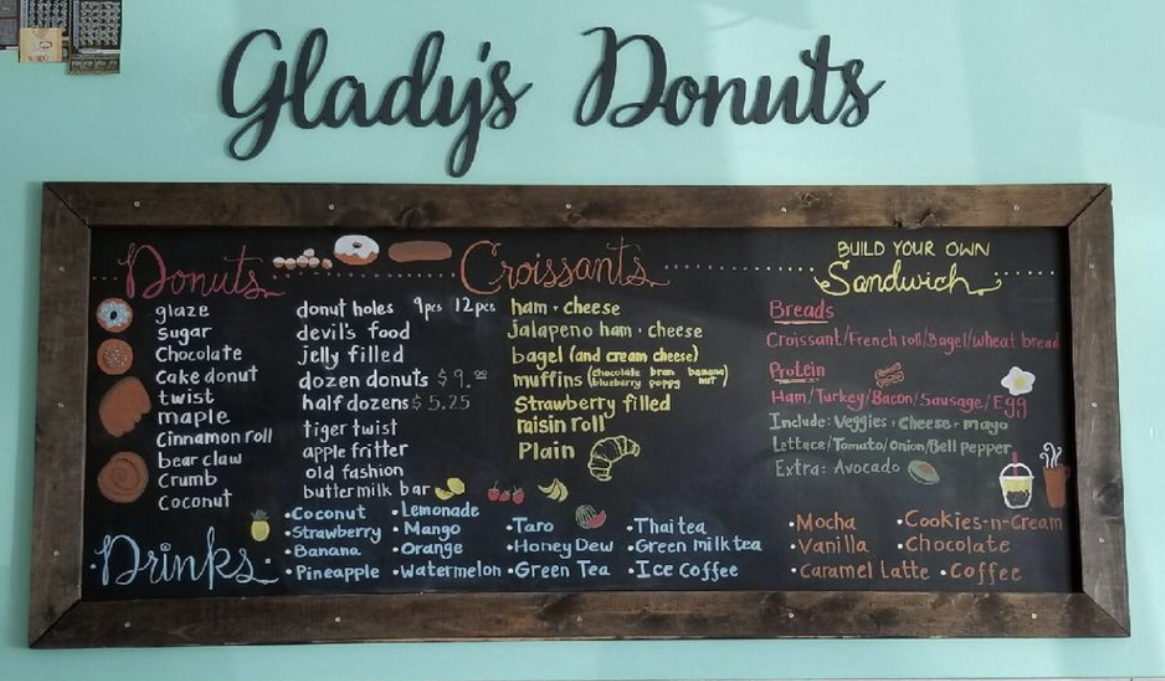 Glady's Donuts
Donuts
glaze
Sugar
Chocolate
Cake donut
twist
maple
Cinnamon roll
bear claw
Crumb
Coconut
donut holes 9pcs 12pcs
devil's food
jelly filled
dozen donuts $9.00
half dozens $5.25
tiger twist
apple fritter
old fashion
buttermilk bar
Croissants
ham + cheese
Jalapeno ham + cheese
bagel (and cream cheese)
muffins (chocolate bran banana
blueberry poppy nut)
Strawberry filled
raisin roll
Plain
BUILD YOUR OWN
Sandwich
Breads
Croissant/French roll/Bagel/wheat bread
Protein
Ham/Turkey/Bacon/Sausage/Egg
Include: Veggies + Cheese + mayo
Lettace/Tomato/Onion/Bell pepper
Extra: Avocado
Drinks
•Coconut
•Strawberry
•Banana
•Pineapple
•Lemonade
•Mango
•Orange
•Watermelon
•Taro
•Honey Dew
•Green Tea
•Thai tea
•Green milk tea
•Ice Coffee
•Mocha
•Vanilla
•Caramel Latte
•Cookies-n-Cream
•Chocolate
•Coffee